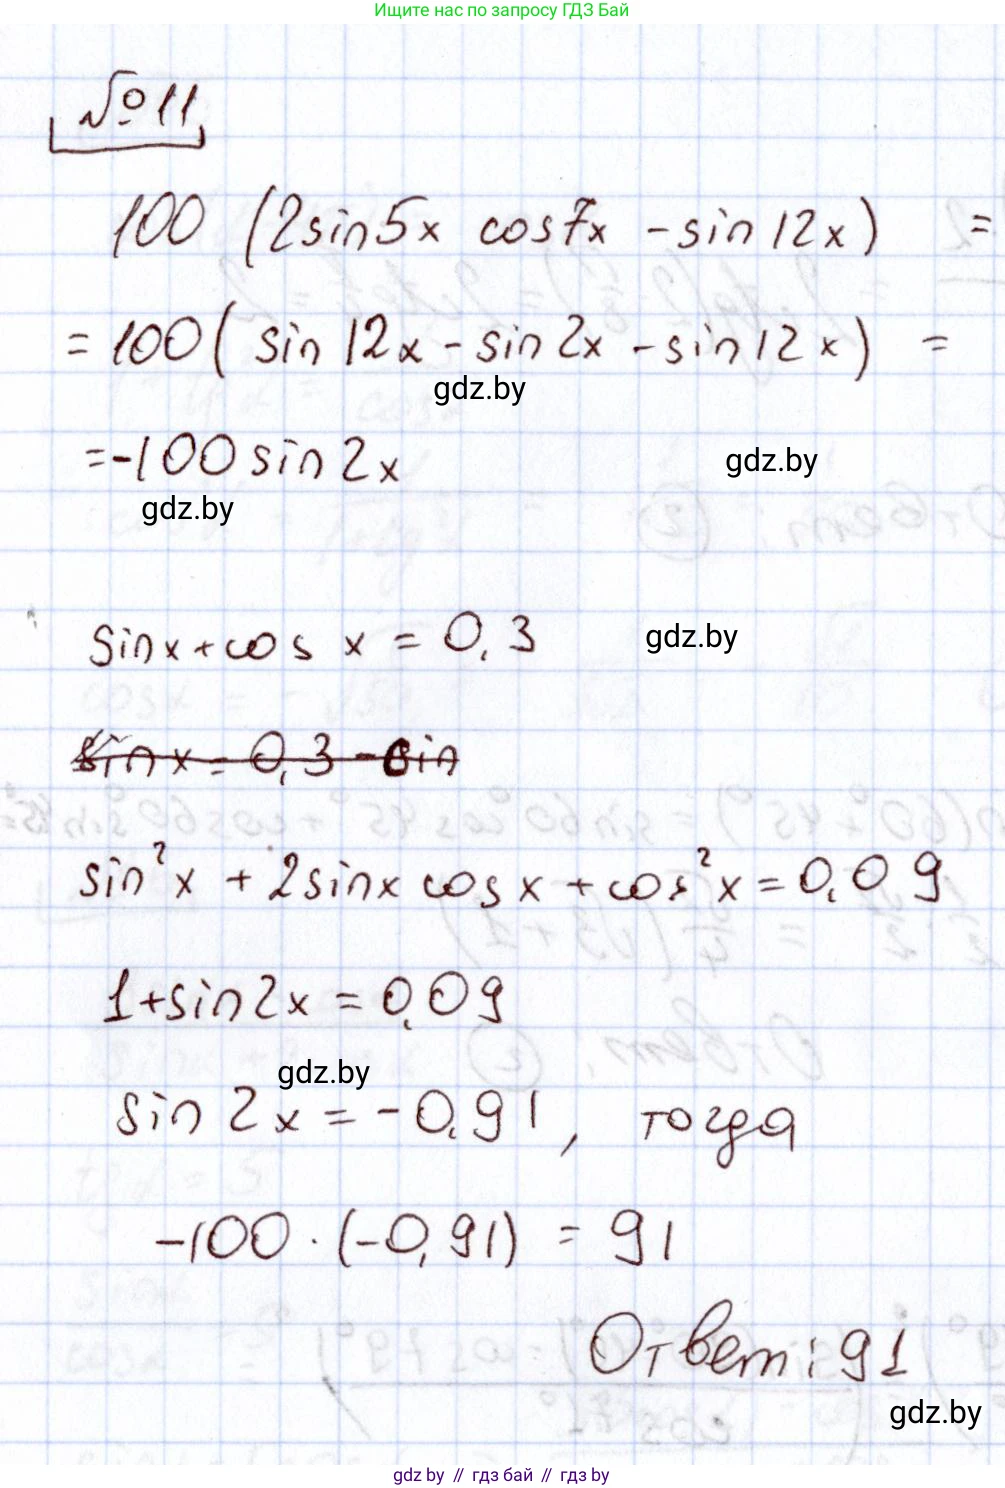 Ищите нас по запросу ГДЗ Бай
№11
100 (2sin5x cos7x - sin12x) =
= 100( sin 12x - sin 2x - sin 12x) =
gdz.by
= -100 sin 2x
gdz.by
gdz.by
sinx + cos x = 0,3
gdz.by
sin x = 0,3 - sin
sin²x + 2sinx cosx + cos²x = 0,09
1 + sin2x = 0,09
gdz.by
sin 2x = -0,91, тогда
-100 · (-0,91) = 91
Ответ: 91
gdz.by
gdz by // гдз бай // gdz by